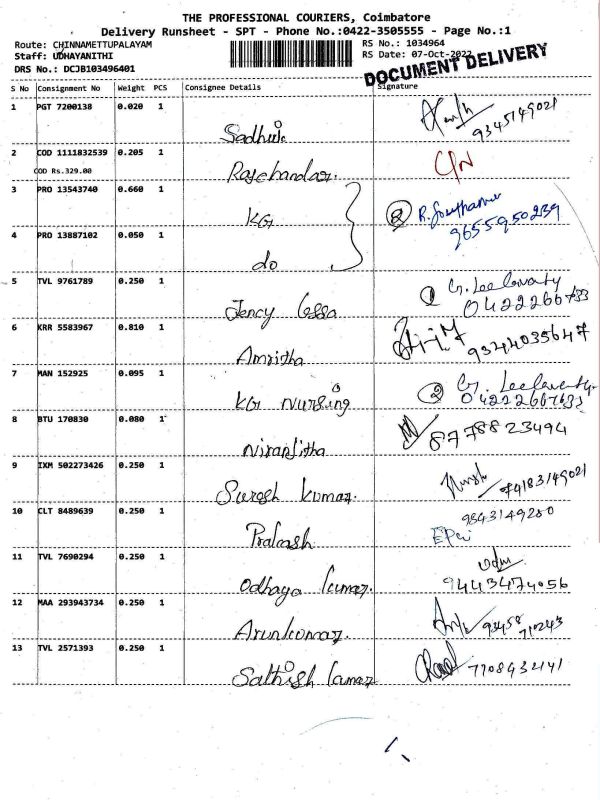 THE PROFESSIONAL COURIERS, Coimbatore
Delivery Runsheet - SPT - Phone No.:0422-3505555 - Page No.:1
Route: CHINNAMETTUPALAYAM
Staff: UDHAYANITHI
DRS No.: DCJB103496401
RS No.: 1034964
RS Date: 07-Oct-2022
DOCUMENT DELIVERY
S No Consignment No Weight PCS Consignee Details Signature
1 PGT 7200138 0.020 1
9345149021
2 COD 1111832539 0.205 1 C/N
COD Rs.329.00 Rajchandar.
3 PRO 13543740 0.660 1 2
KG 9655950239
4 PRO 13887102 0.050 1
do
5 TVL 9761789 0.250 1 1 G. Leelavathy
Jency
6 KRR 5583967 0.810 1 9344035647
Amritha
7 MAN 152925 0.095 1 2 G. Leelavathy
KG Nursing
8 BTU 170830 0.080 1 8778823494
Niranjitha
9 IXM 502273426 0.250 1
Suresh kumar.
10 CLT 8489639 0.250 1 9843149280
Prakash
11 TVL 7690294 0.250 1
Odhaya kumar. 9443474056
12 MAA 293943734 0.250 1 93458
Arunkumar. 710243
13 TVL 2571393 0.250 1
Sathish kumar 7708432141